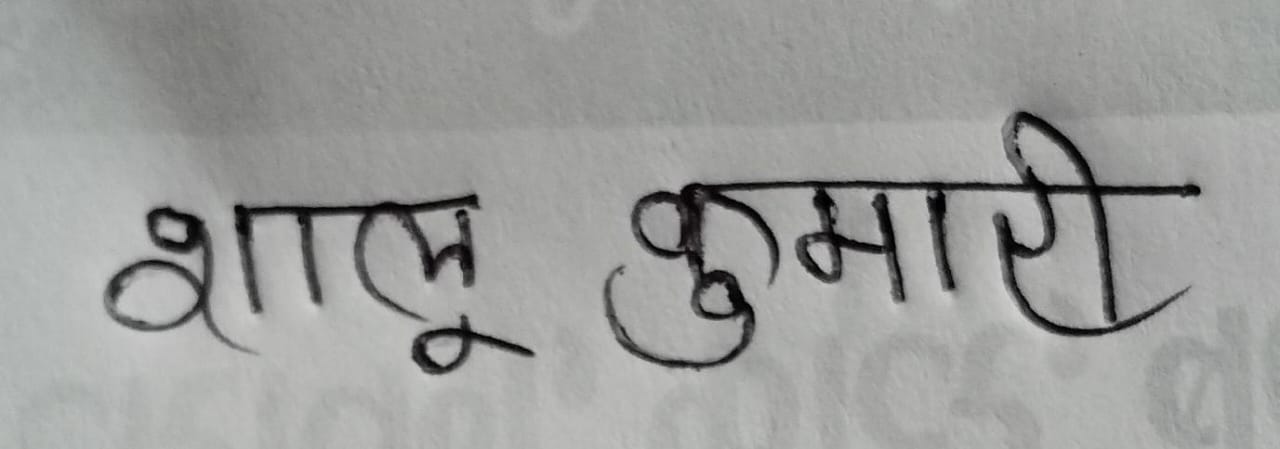 शालू कुमारी